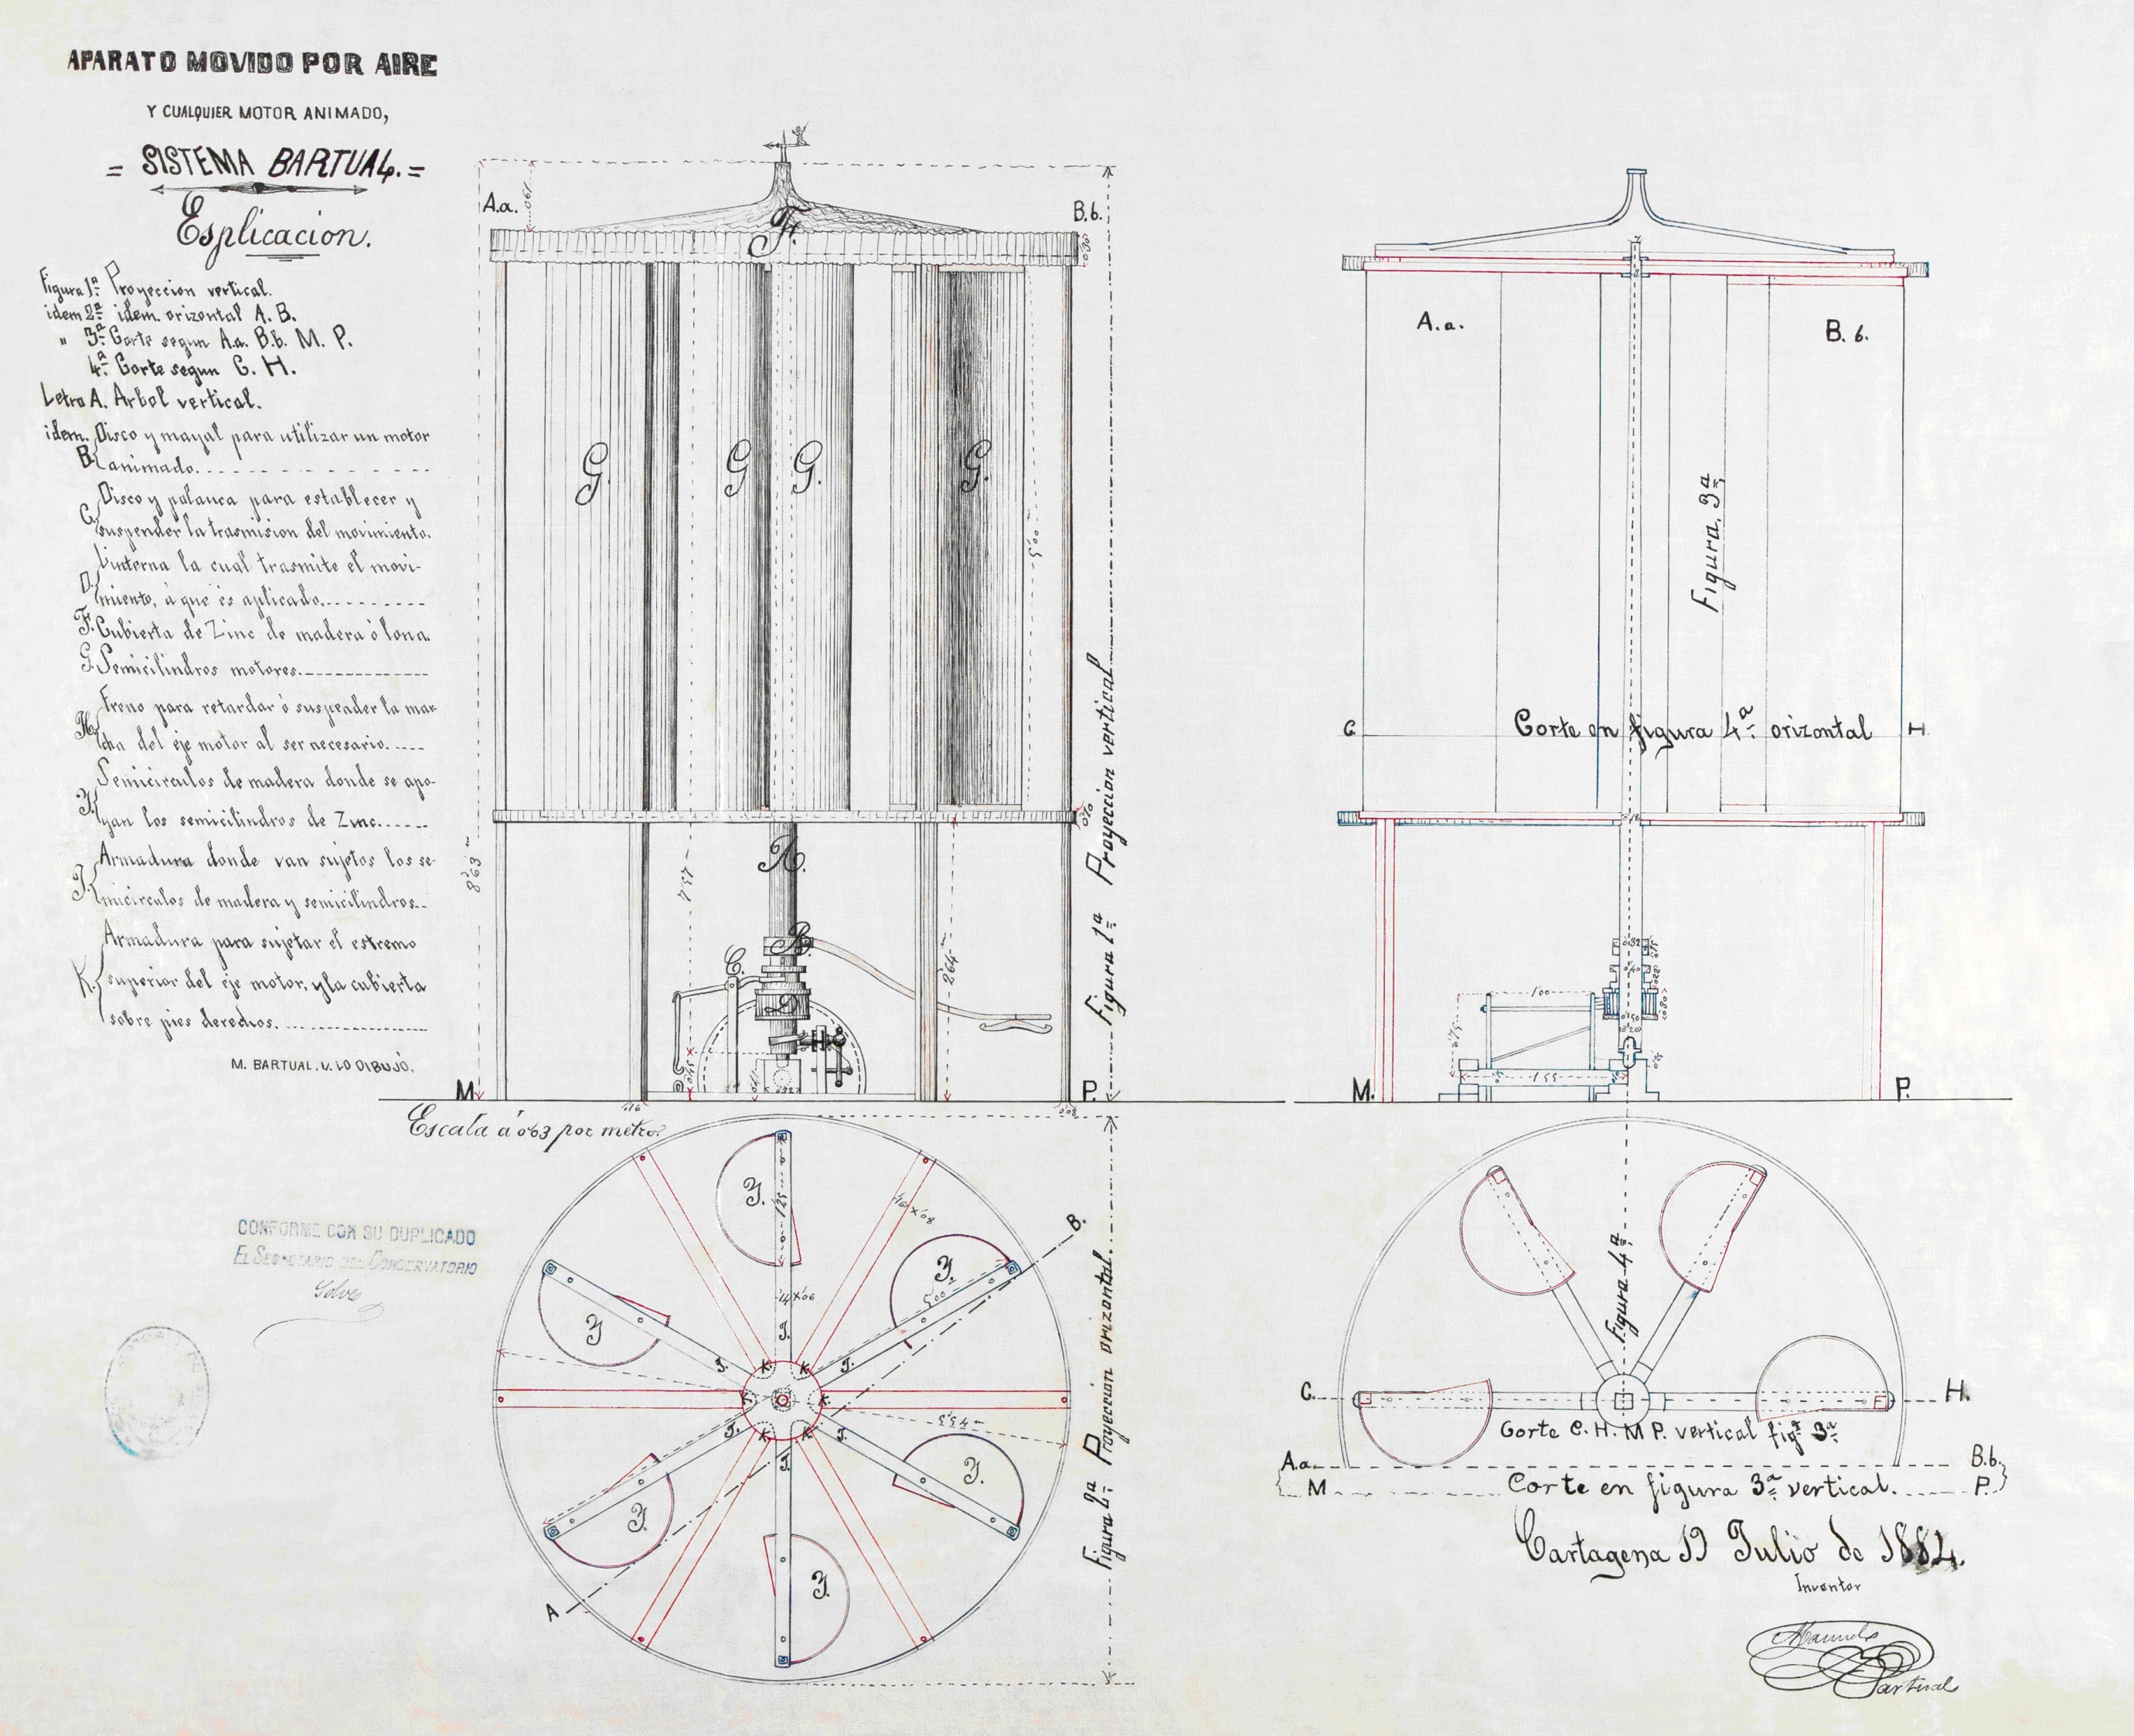 APARATO MOVIDO POR AIRE
Y CUALQUIER MOTOR ANIMADO,
= SISTEMA BARTUAL. =
Esplicacion.
Figura 1ª Proyeccion vertical.
idem 2ª idem. orizontal A. B.
" 3ª Corte segun A.a. B.b. M. P.
4ª Corte segun C. H.
Letra A. Arbol vertical.
idem. Disco y mayal para utilizar un motor
B. animado.
Disco y palanca para establecer y
C. suspender la trasmision del movimiento.
Linterna la cual trasmite el movi-
D. miento, á que es aplicado.
F. Cubierta de Zinc de madera ó lona.
G. Semicilindros motores.
Freno para retardar ó suspender la mar-
H. cha del eje motor al ser necesario.
Semicirculos de madera donde se apo-
Y. yan los semicilindros de Zinc.
Armadura donde van sujetos los se-
J. micirculos de madera y semicilindros.
Armadura para sujetar el estremo
K. superior del eje motor, y la cubierta
sobre pies derechos.
M. BARTUAL. V. LO DIBUJÓ.
A.a.
B.b.
F.
G. G G. G.
5'00
8'63
A.
B.
C.
D
2'64
M.
P.
Figura 1ª Proyeccion vertical
Escala á 0'63 por metro.
CONFORME CON SU DUPLICADO
EL SECRETARIO DEL CONSERVATORIO
Y. Y. Y. Y. Y. Y
J. J. J. J. J. J.
K. K. K. K. K. K.
A
B.
Figura 2ª Proyeccion orizontal.
A.a.
B.b.
Figura 3ª
C
Corte en figura 4ª orizontal
H
1'00
1'55
M.
P.
Figura 4ª
C.
H.
Corte C. H. M P. vertical figª 3ª
A.a.
B.b.
M
Corte en figura 3ª vertical.
P.
Cartagena 19 Julio de 1884.
Inventor
Manuel
Bartual